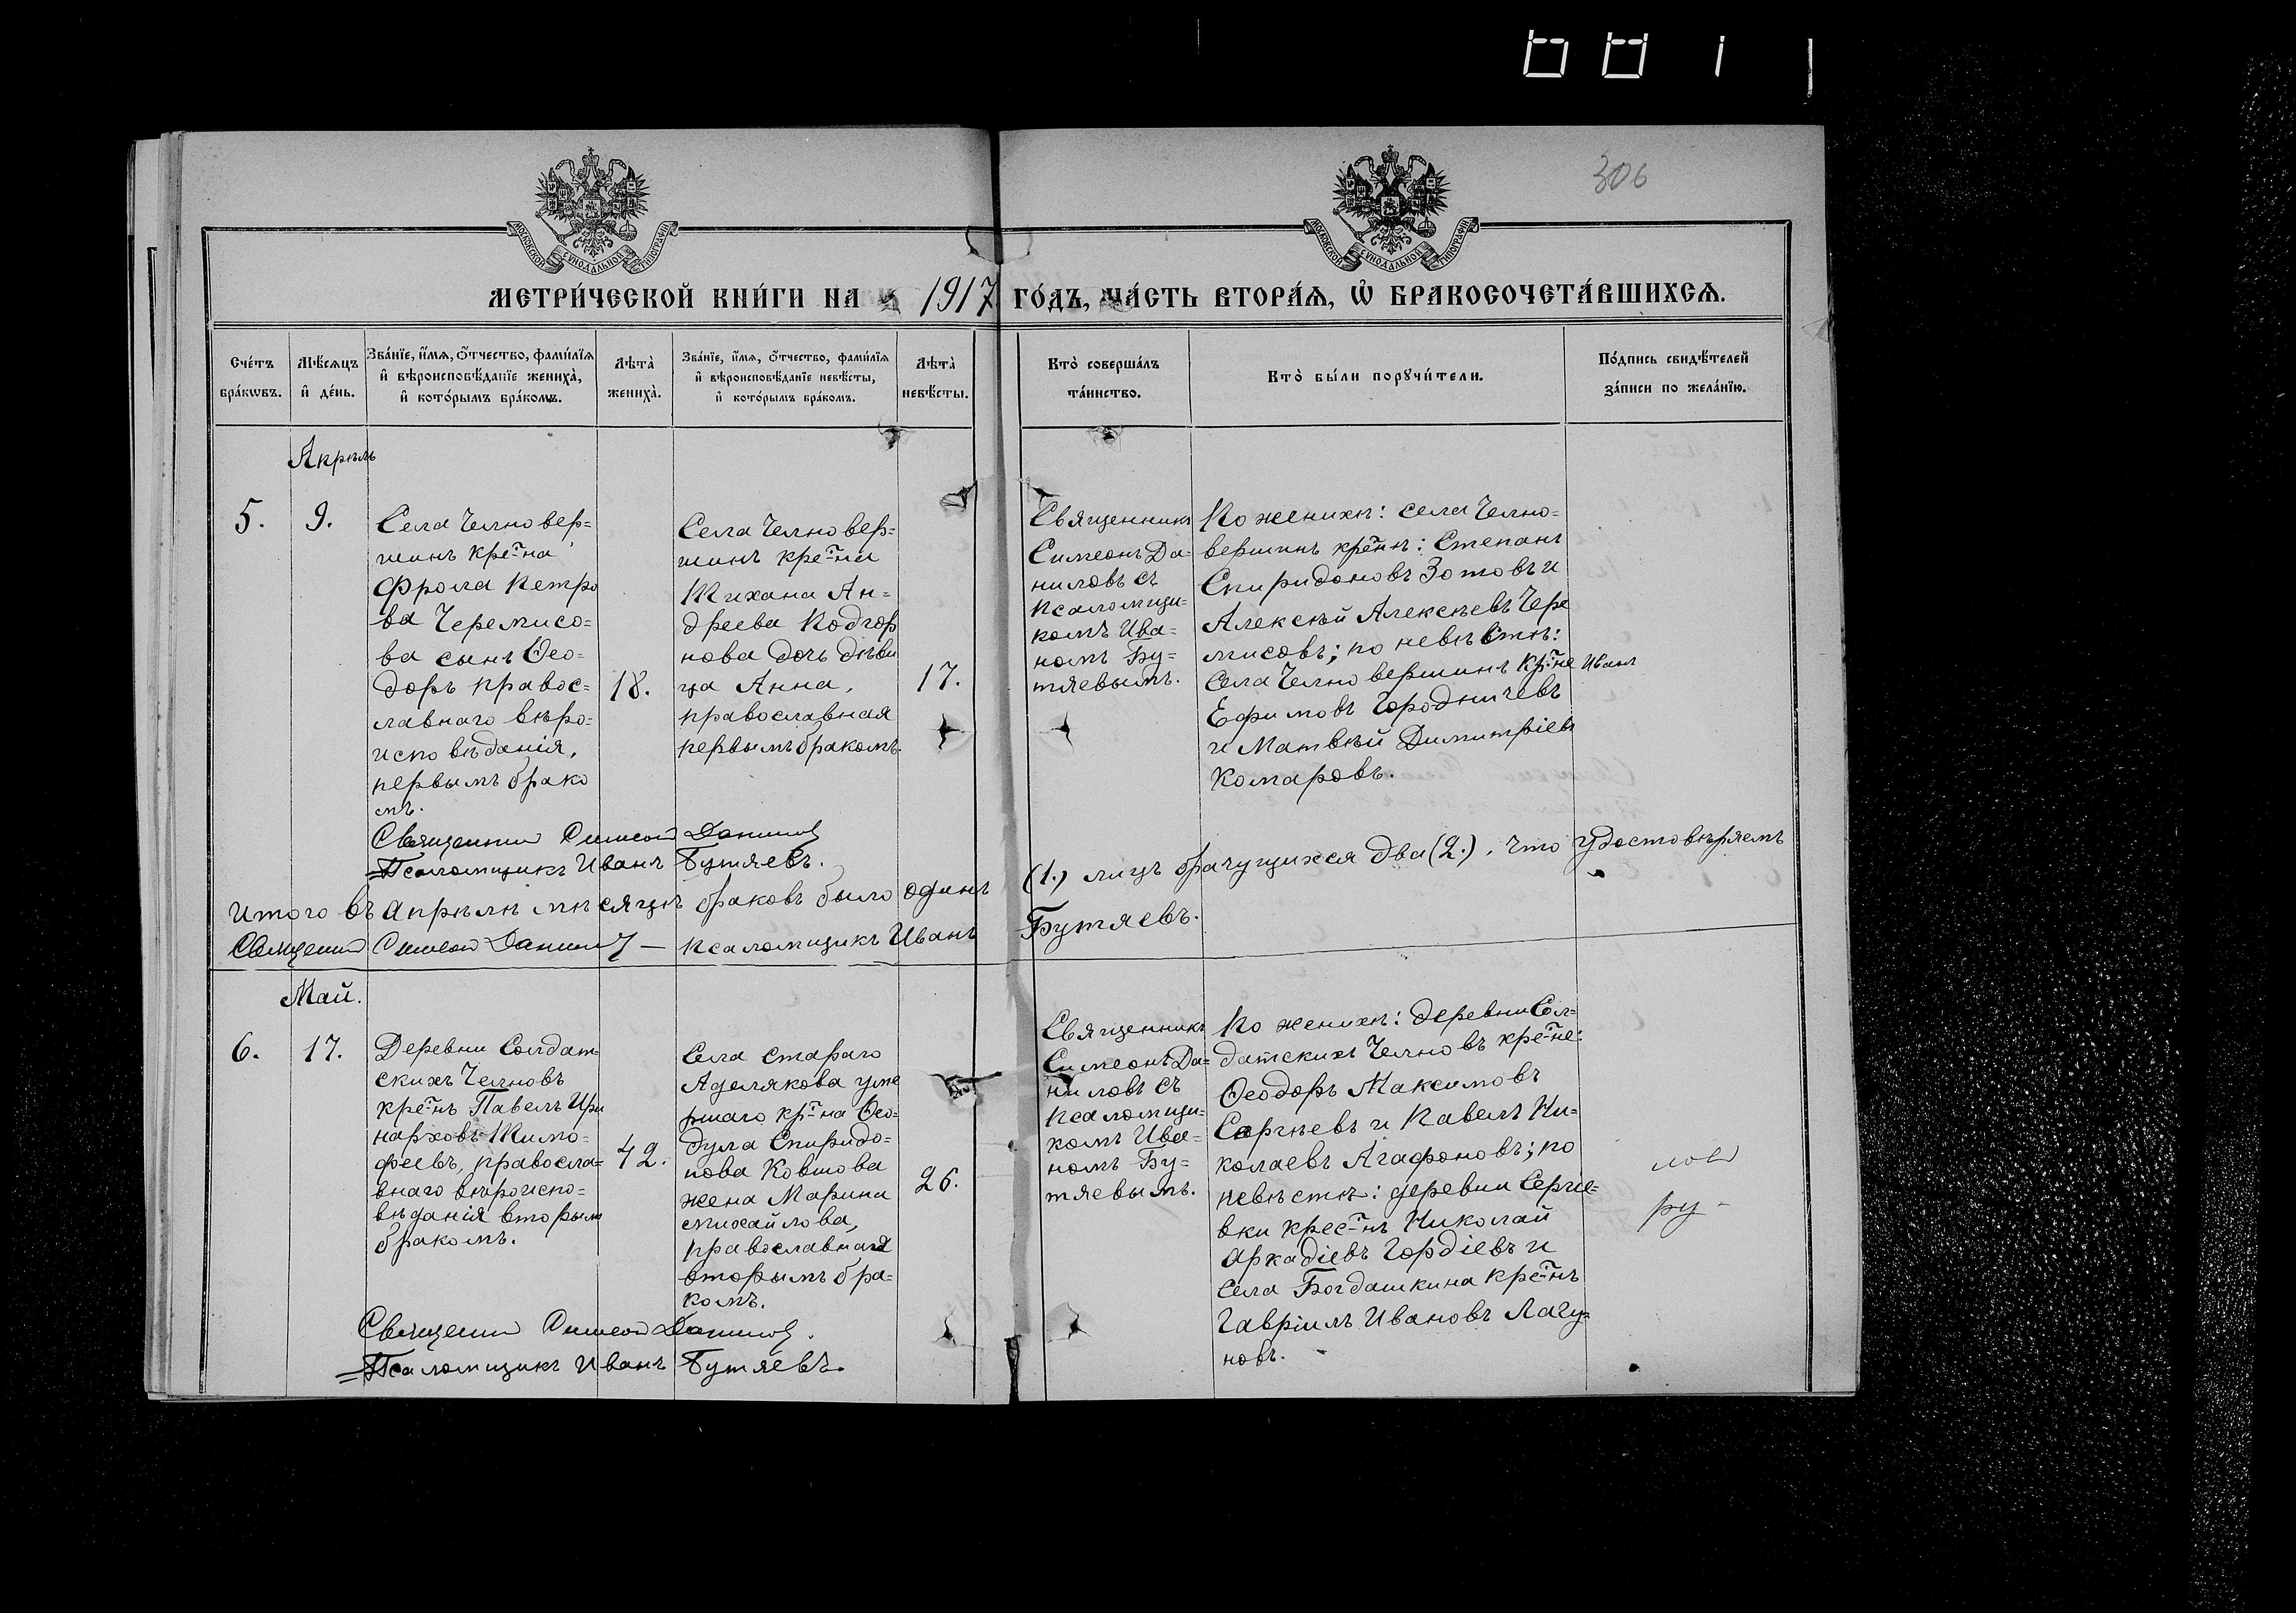 306
МОСКОВСКОЙ СѴНОДАЛЬНОЙ ТИПОГРАФІИ
МОСКОВСКОЙ СѴНОДАЛЬНОЙ ТИПОГРАФІИ
МЕТРИ́ЧЕСКОЙ КНИ́ГИ НА 1917 ГО́ДЪ, ЧА́СТЬ ВТОРА́Ѧ, Ѽ БРАКОСОЧЕТА́ВШИХСѦ.
Сче́тъ
бра́кѡвъ.
Мѣ́сѧцъ
и҆ де́нь.
Зва́нїе, и҆́мѧ, ѻ҆́тчество, фами́лїѧ
и҆ вѣроисповѣ́данїе жениха̀,
и҆ кото́рымъ бра́комъ.
Лѣта̀
жениха̀.
Зва́нїе, и҆́мѧ, ѻ҆́тчество, фами́лїѧ
и҆ вѣроисповѣ́данїе невѣ́сты,
и҆ кото́рымъ бра́комъ.
Лѣта̀
невѣ́сты.
Кто̀ соверша́лъ
та́инство.
Кто̀ бы́ли порꙋчи́тели.
По́дпись свидѣ́телей
за́писи по жела́нїю.
Апрѣль
5.
9.
Села Челновер=
шинъ кре-на
Фрола Петро
ва Черемисо=
ва сынъ Ѳео=
доръ правос=
лавнаго вѣро=
исповѣданія,
первымъ брако
мъ.
18.
Села Челновер=
шинъ кре-на
Тихана Ан=
дреева Подгор
нова дочь дѣви
ца Анна,
православная
первымъ бракомъ.
17.
Священникъ
Симеонъ Да=
ниловъ съ
псаломщи=
комъ Ива=
номъ Бу=
тяевымъ.
По женихѣ: села Челно=
вершинъ кре-нѣ: Степанъ
Спиридоновъ Зотовъ и
Алексѣй Алексѣевъ Чере
мисовъ; по невѣстѣ:
Села Челновершинъ кр-не Иванъ
Ефимовъ Городничевъ
и Матвѣй Димитріевъ
Комаровъ.
Священник Симеон Данилов
Псаломщикъ Иванъ Бутяевъ.
Итого въ Апрѣлѣ мѣсяцѣ браковъ было одинъ (1.) лицъ брачущихся два (2.), что удостовѣряемъ
Священник Симеон Данилов — псаломщикъ Иванъ Бутяевъ.
Май.
6.
17.
Деревни Солдат=
скихъ Челновъ
кре-нъ Павелъ Ири
нарховъ Тимо=
феевъ, правосла=
внаго вѣроиспо=
вѣданія вторымъ
бракомъ.
42.
Села Стараго
Аделякова уме
ршаго кр-на Ѳео=
дула Спиридо=
нова Ковшова
жена Марина
Михайлова,
православная
вторымъ бра=
комъ.
26.
Священникъ
Симеонъ Да=
ниловъ съ
псаломщи=
комъ Ива=
номъ Бу=
тяевымъ.
По женихѣ: деревни Сол=
датскихъ Челновъ кре-не:
Ѳеодоръ Максимовъ
Сергѣевъ и Павелъ Ни=
колаевъ Агафоновъ; по
невѣстѣ: деревни Сергие=
вки крес-нъ Николай
Аркадіевъ Гордіевъ и
Села Богдашкина кре-нъ
Гавріилъ Ивановъ Лагу=
новъ.
ру-
Священник Симеон Данилов.
Псаломщикъ Иванъ Бутяевъ.